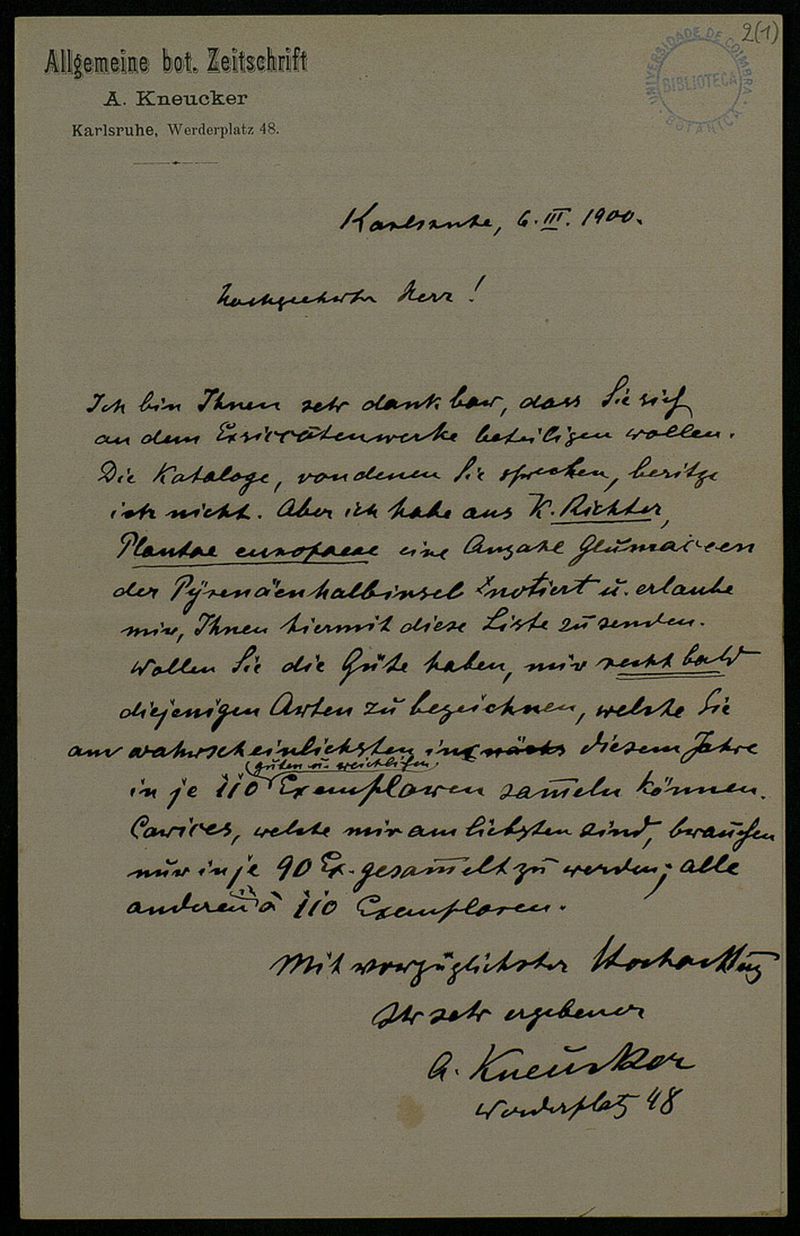 2(1)
UNIVERSIDADE DE COIMBRA
BIBLIOTECA
BOTANICA
Allgemeine bot. Zeitschrift
A. Kneucker
Karlsruhe, Werderplatz 48.
Karlsruhe, 6. III. 1900.
Hochgeehrter Herr!
Ich bin Ihnen sehr dankbar, dass Sie sich
an dem Exsiccatenwerke beteiligen wollen.
Die Kataloge, von denen Sie sprechen, besitze
ich nicht. Aber ich habe aus K. Richter,
Plantae europaeae eine Anzahl Glumaceen
der Pyrenäenhalbinsel notiert u. erlaube
mir, Ihnen hiermit diese Liste zu senden.
Wollen Sie die Güte haben, mir recht bald
diejenigen Arten zu bezeichnen, welche Sie
am wahrscheinlichsten in diesem Jahre
guten u. reichlichen
in je 110 Exemplaren sam̅eln können.
Carices, welche mir am liebsten sind, brauchen
nur in je 90 Ex. gesam̅elt zu werden; alle
anderen in à 110 Exemplaren.
Mit vorzüglichster Hochachtung
Ihr sehr ergebener
A. Kneucker
Werderplatz 48